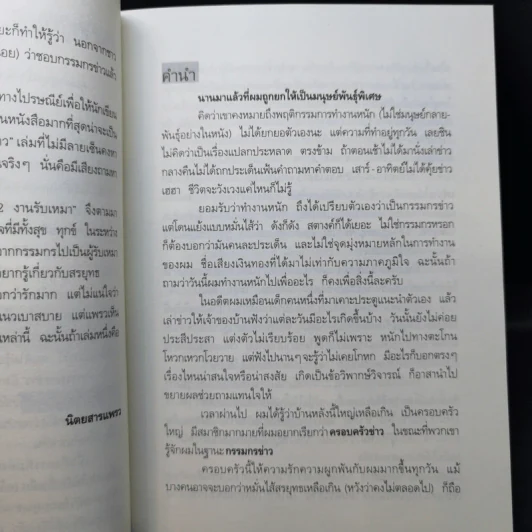 ะก็ทำให้รู้ว่า นอกจากชาว
อย) ว่าชอบกรรมกรข่าวแล้ว
ทางไปรษณีย์เพื่อให้นักเขียน
หนังสือมากที่สุดน่าจะเป็น
ว" เล่มที่ไม่มีลายเซ็นคงหา
จริงๆ นั่นคือมีเสียงถามหา
2 งานรับเหมา" จึงตามมา
ที่มีทั้งสุข ทุกข์ ในระหว่าง
ากกรรมกรไปเป็นผู้รับเหมา
อยากรู้เกี่ยวกับสรยุทธ
กว่ารักมาก แต่ไม่แน่ใจว่า
แนวเบาสบาย แต่แพรวเห็น
เหล่านี้ ฉะนั้นถ้าเล่มหนึ่งคือ
นิตยสารแพรว
คำนำ
นานมาแล้วที่ผมถูกยกให้เป็นมนุษย์พันธุ์พิเศษ
คิดว่าเขาคงหมายถึงพฤติกรรมการทำงานหนัก (ไม่ใช่มนุษย์กลาย-
พันธุ์อย่างในหนัง) ไม่ได้ยกยอตัวเองนะ แต่ความที่ทำอยู่ทุกวัน เลยชิน
ไม่คิดว่าเป็นเรื่องแปลกประหลาด ตรงข้าม ถ้าตอนเช้าไม่ได้มานั่งเล่าข่าว
กลางคืนไม่ได้ถกประเด็นเฟ้นคำถามหาคำตอบ เสาร์-อาทิตย์ไม่ได้คุยข่าว
เฮฮา ชีวิตจะวังเวงแค่ไหนก็ไม่รู้
ยอมรับว่าทำงานหนัก ถึงได้เปรียบตัวเองว่าเป็นกรรมกรข่าว
แต่โดนแย้งแบบหมั่นไส้ว่า ดังก็ดัง สตางค์ก็ได้เยอะ ไม่ใช่กรรมกรหรอก
ก็ต้องบอกว่ามันคนละประเด็น และไม่ใช่จุดมุ่งหมายหลักในการทำงาน
ของผม ชื่อเสียงเงินทองที่ได้มาไม่เท่ากับความภาคภูมิใจ ฉะนั้นถ้า
ถามว่าวันนี้ผมทำงานหนักไปเพื่ออะไร ก็คงเพื่อสิ่งนี้ละครับ
ในอดีตผมเหมือนเด็กคนหนึ่งที่มาเคาะประตูแนะนำตัวเอง แล้ว
เล่าข่าวให้เจ้าของบ้านฟังว่าแต่ละวันมีอะไรเกิดขึ้นบ้าง วันนั้นยังไม่ค่อย
ประสีประสา แต่งตัวไม่เรียบร้อย พูดก็ไม่เพราะ หนักไปทางตะโกน
โหวกเหวกโวยวาย แต่ฟังไปนานๆ จะรู้ว่าไม่เคยโกหก มีอะไรก็บอกตรงๆ
เรื่องไหนน่าสนใจหรือน่าสงสัย เกิดเป็นข้อวิพากษ์วิจารณ์ ก็อาสานำไป
ขยายผลช่วยถามแทนใจให้
เวลาผ่านไป ผมได้รู้ว่าบ้านหลังนี้ใหญ่เหลือเกิน เป็นครอบครัว
ใหญ่ มีสมาชิกมากมายที่ผมอยากเรียกว่าครอบครัวข่าว ในขณะที่พวกเขา
รู้จักผมในฐานะกรรมกรข่าว
ครอบครัวนี้ให้ความรักความผูกพันกับผมมากขึ้นทุกวัน แม้
บางคนอาจจะบอกว่าหมั่นไส้สรยุทธเหลือเกิน (หวังว่าคงไม่ตลอดไป) ก็ถือ